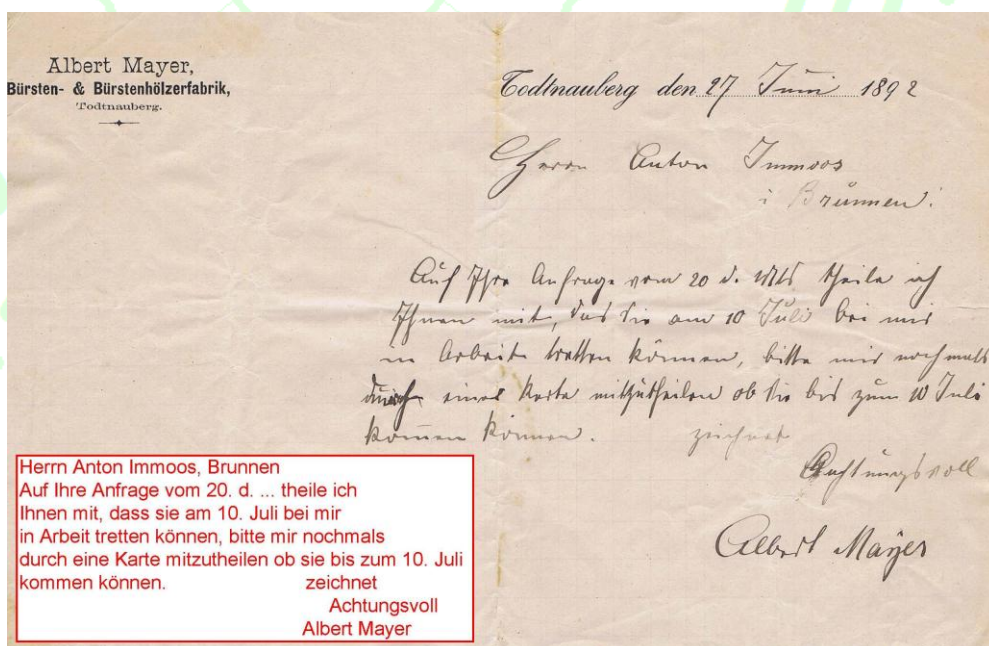 Albert Mayer,
Bürsten- & Bürstenhölzerfabrik,
Todtnauberg.
Todtnauberg den 27 Juni 1892
Herrn Anton Immoos
i Brunnen.
Auf Ihre Anfrage vom 20 d. Mts theile ich
Ihnen mit, das Sie am 10 Juli bei mir
in Arbeit tretten können, bitte mir nochmals
durch eine Karte mitzutheilen ob Sie bis zum 10 Juli
kommen können. zeichnet
Achtungsvoll
Albert Mayer
Herrn Anton Immoos, Brunnen
Auf Ihre Anfrage vom 20. d. ... theile ich
Ihnen mit, dass sie am 10. Juli bei mir
in Arbeit tretten können, bitte mir nochmals
durch eine Karte mitzutheilen ob sie bis zum 10. Juli
kommen können. zeichnet
Achtungsvoll
Albert Mayer